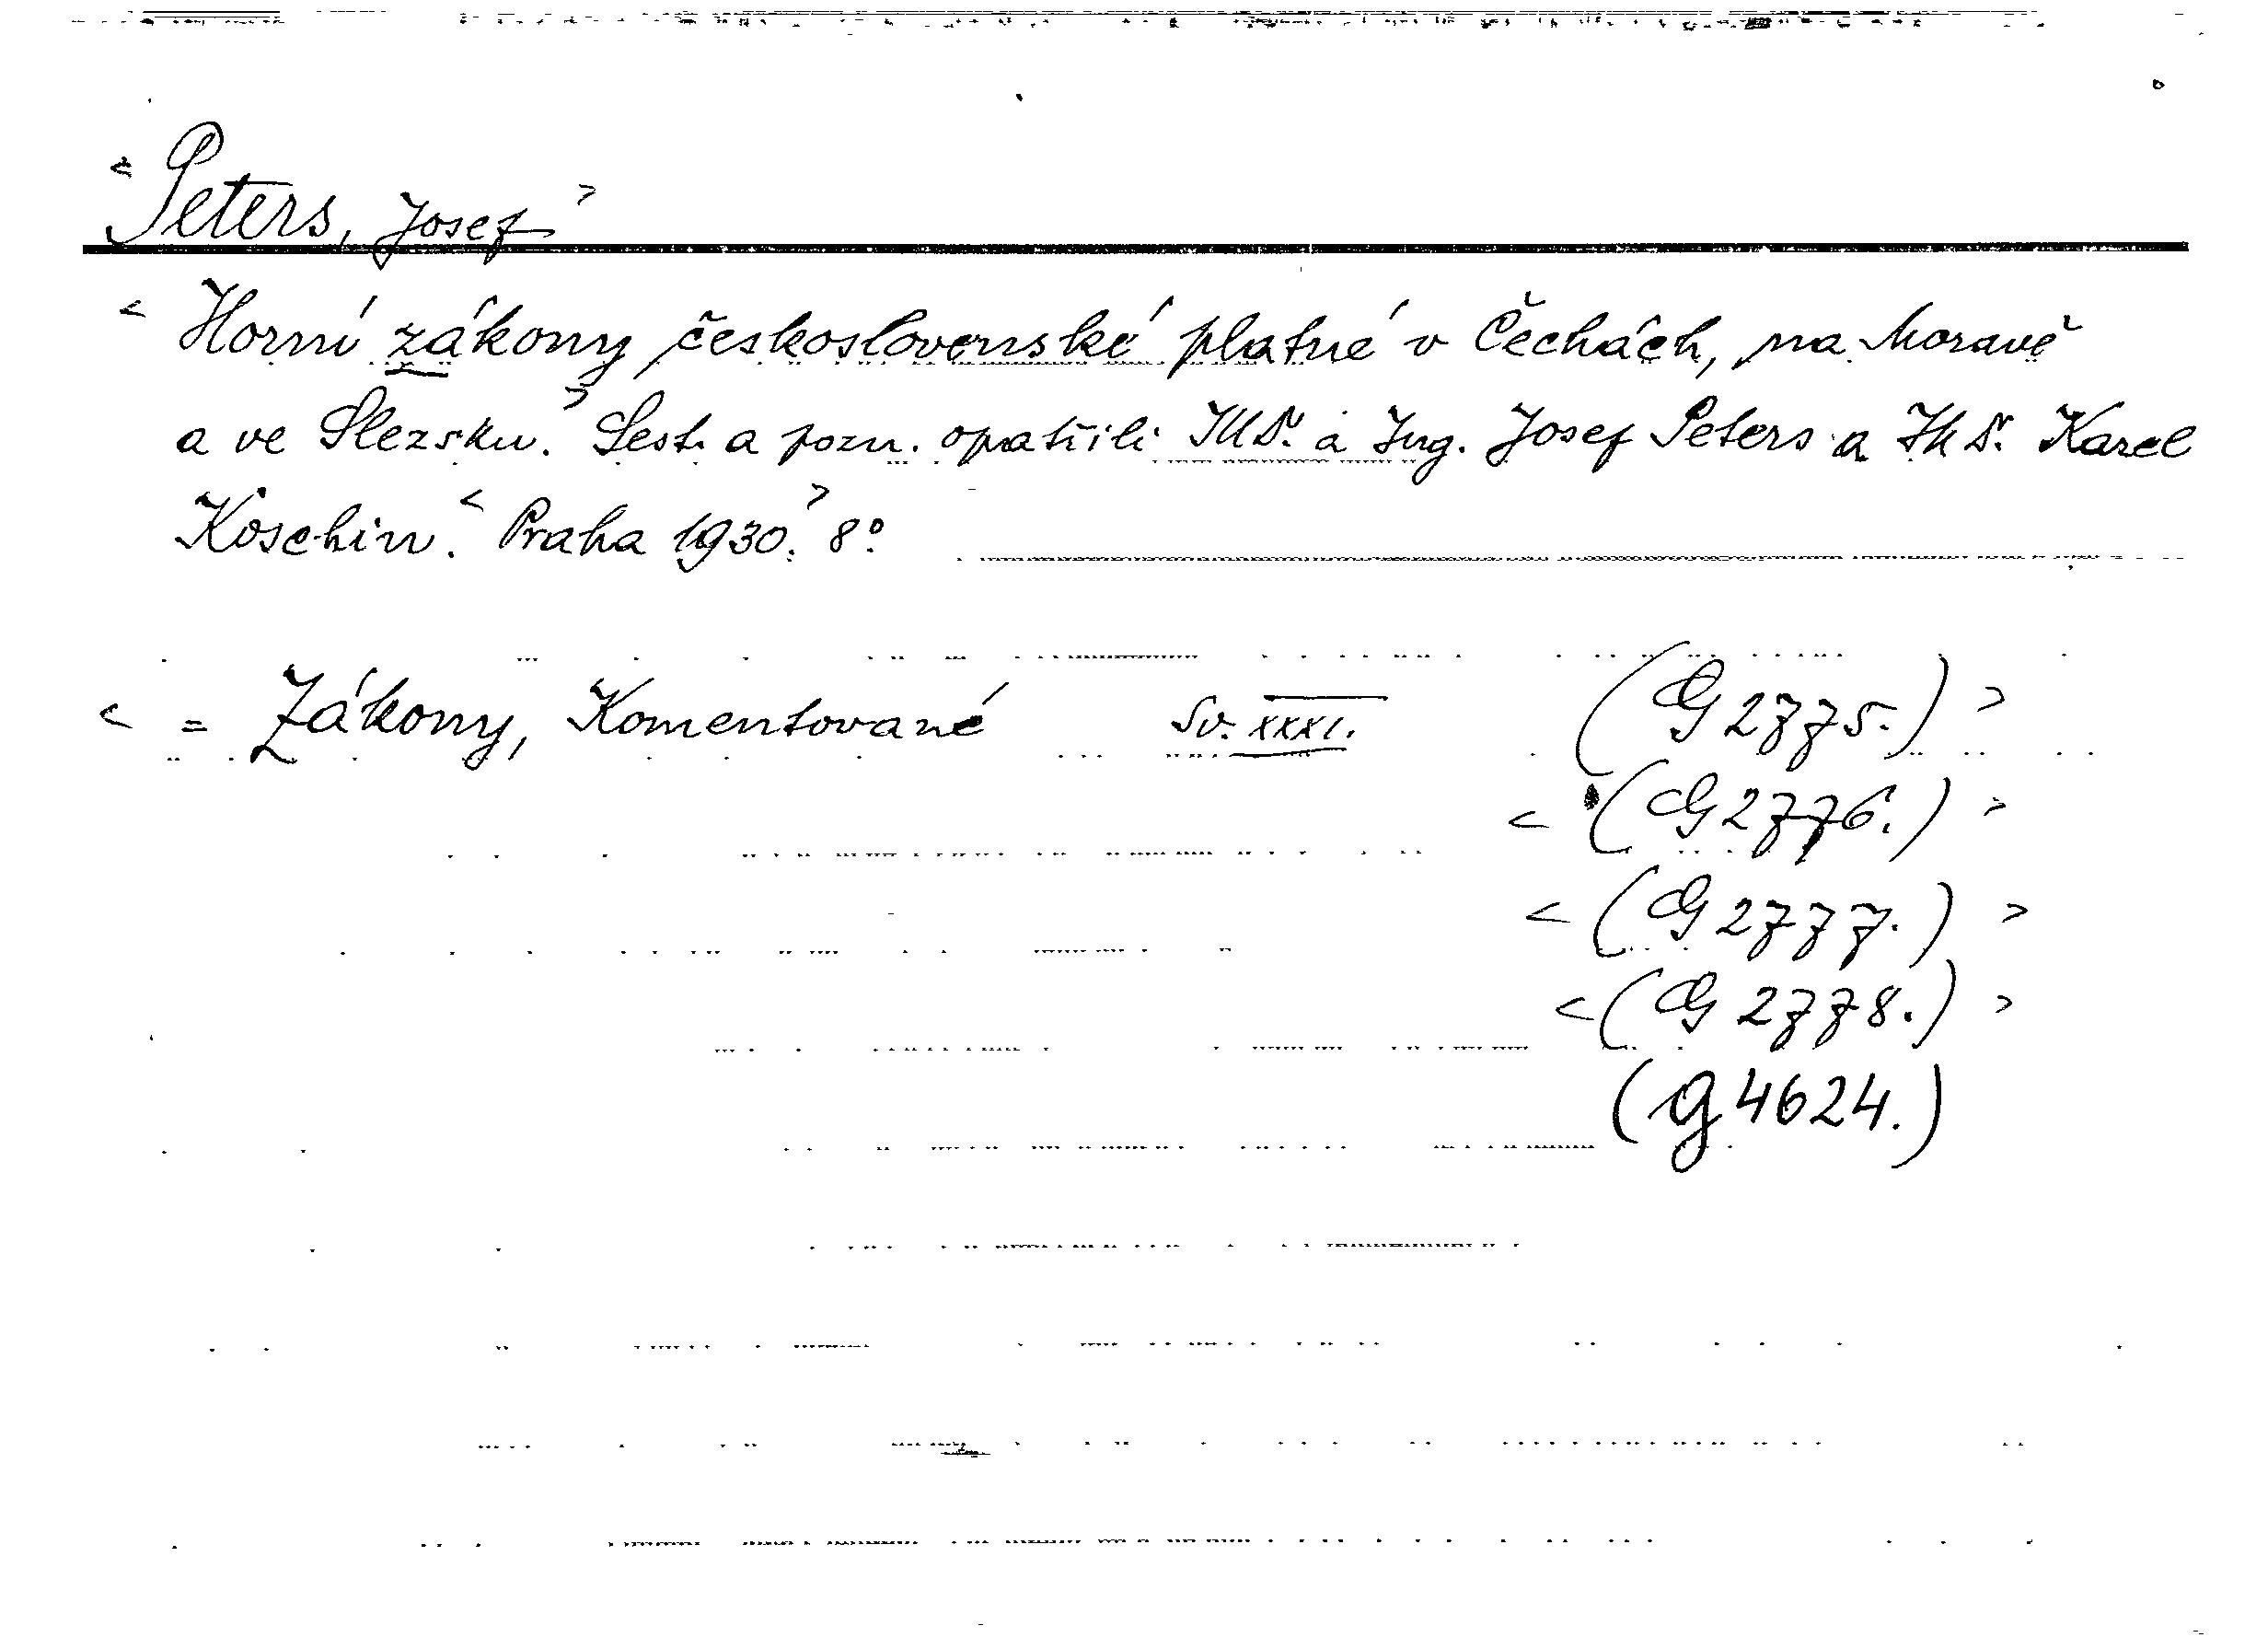 < Peters, Josef >
< Horní zákony československé platné v Čechách, na Moravě
a ve Slezsku. > Sest. a pozn. opatřili JUDr. a Ing. Josef Peters a JUDr. Karel
Koschin. < Praha 1930. > 8º.
< = Zákony, Komentované Sv. XXXI. (G 2775.) >
< (G 2776.) >
< (G 2777.) >
< (G 2778.) >
(g 4624.)